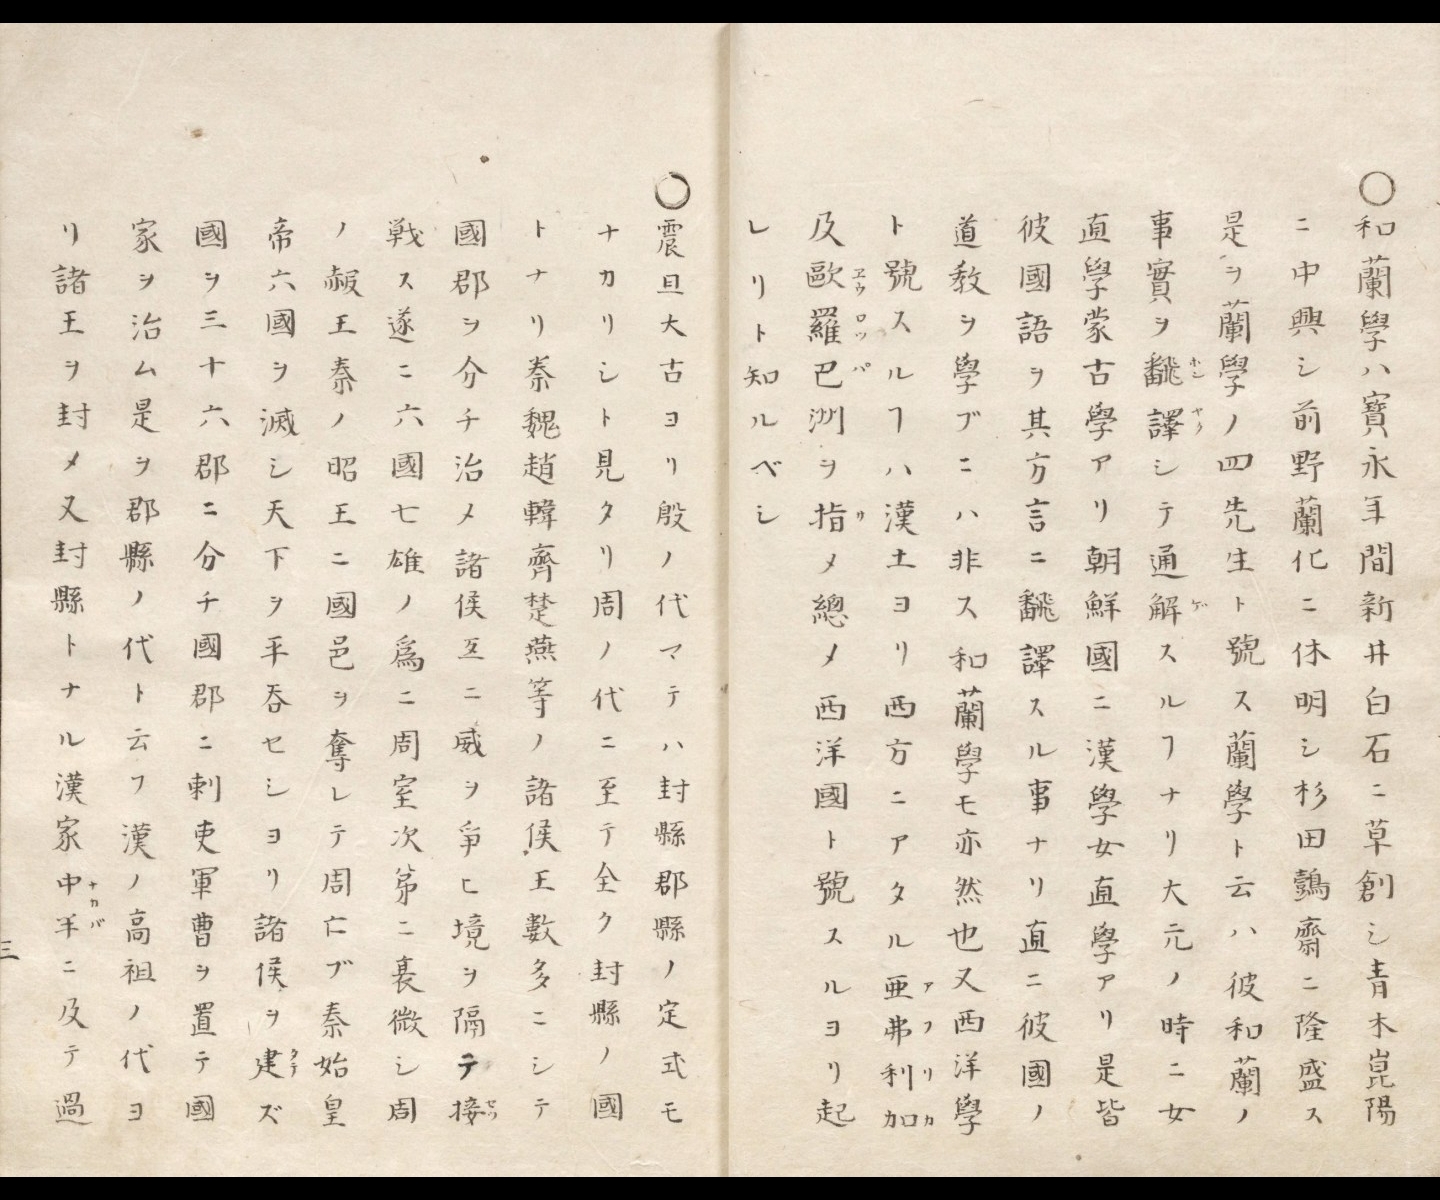 ○和蘭學ハ寶永年間新井白石ニ草創シ青木崑陽
ニ中興シ前野蘭化ニ休明シ杉田鷧齋ニ隆盛ス
是ヲ蘭學ノ四先生ト號ス蘭學ト云ハ彼和蘭ノ
事實ヲ飜譯シテ通解スルヿナリ大元ノ時ニ女
直學蒙古學アリ朝鮮國ニ漢學女直學アリ是皆
彼國語ヲ其方言ニ飜譯スル事ナリ直ニ彼國ノ
道教ヲ學ブニハ非ス和蘭學モ亦然也又西洋學
ト號スルヿハ漢土ヨリ西方ニアタル亜弗利加
及歐羅巴洲ヲ指メ總メ西洋國ト號スルヨリ起
レリト知ルベシ
○震旦大古ヨリ殷ノ代マテハ封縣郡縣ノ定式モ
ナカリシト見タリ周ノ代ニ至テ全ク封縣ノ國
トナリ秦魏趙韓齊楚燕等ノ諸侯王數多ニシテ
國郡ヲ分チ治メ諸侯互ニ威ヲ爭ヒ境ヲ隔テ接
戦ス遂ニ六國七雄ノ爲ニ周室次第ニ衰微シ周
ノ赧王秦ノ昭王ニ國邑ヲ奪レテ周亡ブ秦始皇
帝六國ヲ滅シ天下ヲ平呑セシヨリ諸侯ヲ建ズ
國ヲ三十六郡ニ分チ國郡ニ刺吏軍曹ヲ置テ國
家ヲ治ム是ヲ郡縣ノ代ト云フ漢ノ高祖ノ代ヨ
リ諸王ヲ封メ又封縣トナル漢家中半ニ及テ過
三